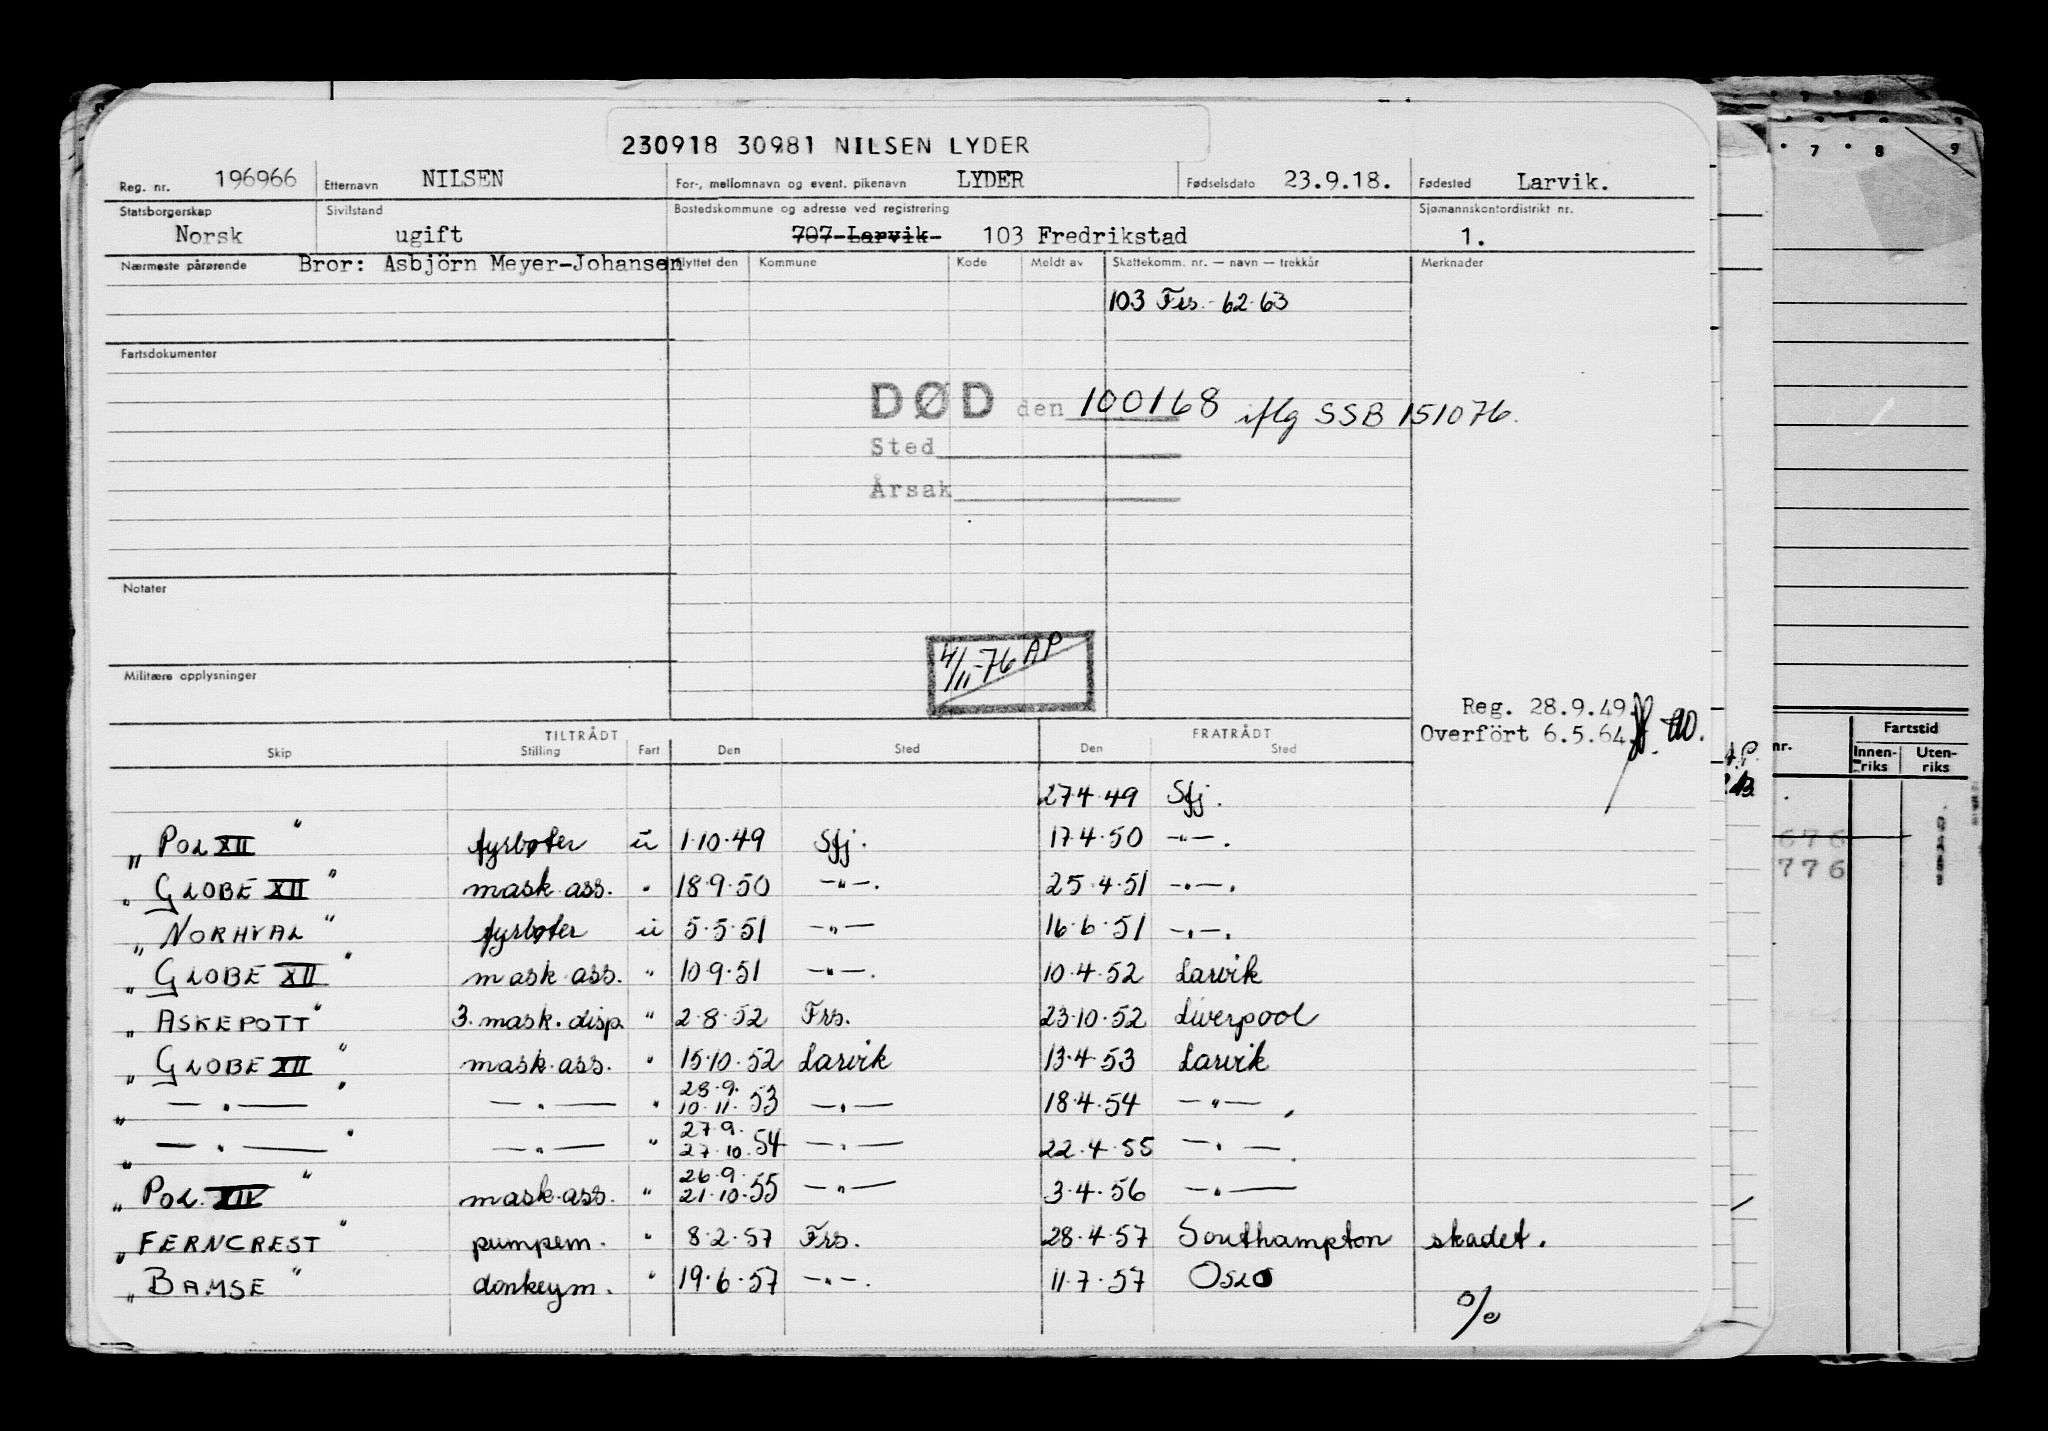 230918 30981 NILSEN LYDER
Reg. nr. 196966 Etternavn NILSEN For-, mellomnavn og event. pikenavn LYDER Fødselsdato 23.9.18. Fødested Larvik.
Statsborgerskap Sivilstand Bostedskommune og adresse ved registrering Sjømannskontordistrikt nr.
Norsk ugift 707 Larvik 103 Fredrikstad 1.
Nærmeste pårørende Bror: Asbjörn Meyer-Johansen Flyttet den Kommune Kode Meldt av Skattekomm. nr. — navn — trekkår Merknader
103 Frs. - 62-63
Fartsdokumenter
DØD den 100168 iflg SSB 151076.
Sted
Årsak
Notater
4/11-76 AP
Militære opplysninger
Reg. 28.9.49.
Overfört 6.5.64.
TILTRÅDT FRATRÅDT
Skip Stilling Fart Den Sted Den Sted
27.4.49 Sfj.
„ POL XII " fyrbøter ü 1.10.49 Sfj. 17.4.50 —"—.
„ GLOBE XII " mask.ass. " 18.9.50 —"—. 25.4.51 —"—.
„ NORHVAL " fyrbøter ü 5.5.51 —"— 16.6.51 —"—.
„ GLOBE XII " mask.ass. " 10.9.51 —"—. 10.4.52 Larvik
„ ASKEPOTT " 3. mask. disp. " 2.8.52 Frs. 23.10.52 Liverpool
„ GLOBE XII " mask.ass. " 15.10.52 Larvik 13.4.53 Larvik
„ —"— " —"— " 28.9. 10.11.53 —"— 18.4.54 —"—
„ —"— " —"— " 27.9. 27.10.54 —"— 22.4.55 —"—
„ POL XIV " mask.ass. " 26.9. 21.10.55 —"— 3.4.56 —"—
„ FERNCREST " pumpem. " 8.2.57 Frs. 28.4.57 Southampton skadet.
„ BAMSE " donkeym. " 19.6.57 —"—. 11.7.57 OSLO
%
7 8 9
nr. Fartstid
Innenriks Utenriks
676
776